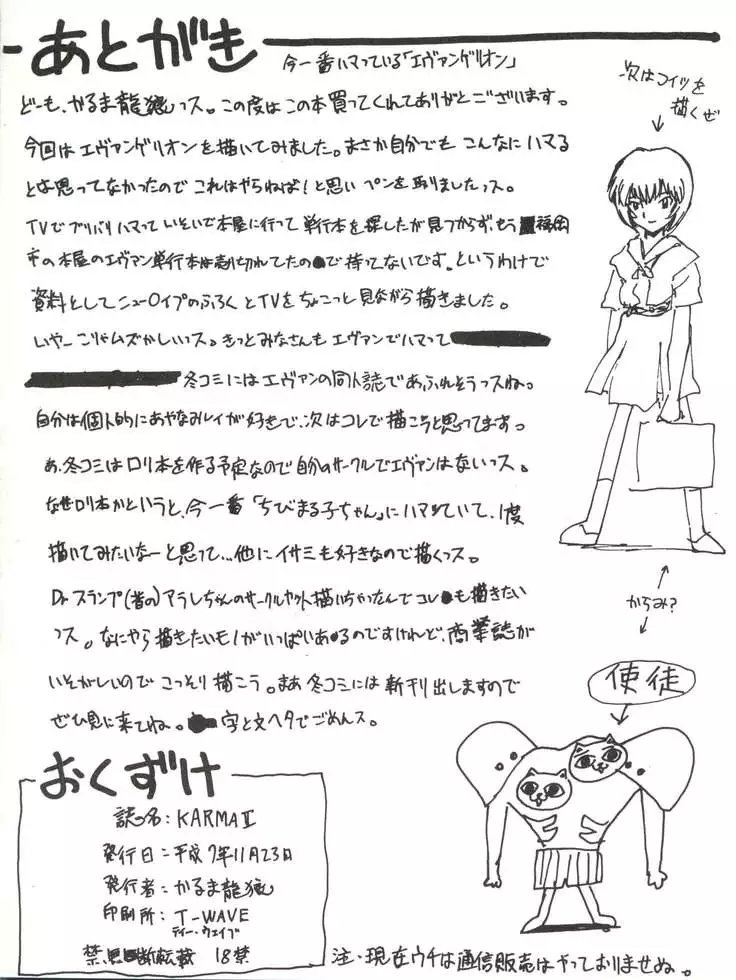 あとがき
今一番ハマっている「エヴァンゲリオン」
どーも、かるま龍狼っス。この度はこの本買ってくれてありがとーございます。
今回はエヴァンゲリオンを描いてみました。まさか自分でもこんなにハマる
とは思ってなかったのでこれはやらねば！と思いペンを取りましたっス。
TVでブリバリハマっていそいで本屋に行って単行本を探したが見つからず、もう福岡
市の本屋のエヴァン単行本は売り切れてたので持ってないです。というわけで
資料としてニューロイプのふろくとTVをちょこっと見ながら描きました。
いやーこりゃムズかしいっス。きっとみなさんもエヴァンでハマって
冬コミにはエヴァンの同人誌であふれそうっスね。
自分は個人的にあやなみレイが好きで、次はコレで描こうと思ってます。
あ、冬コミはロリ本を作る予定なので自分のサークルでエヴァンはないっス。
なぜロリ本かというと、今一番「ちびまる子ちゃん」にハマっていて、1度
描いてみたいなーと思って…他にイサミも好きなので描くっス。
Dr.スランプ(昔の)アラレちゃんのサークルカット描いちゃったんでコレも描きたい
っス。なにやら描きたいモノがいっぱいあるのですけれど、商業誌が
いそがしいのでこっそり描こう。まあ冬コミには新刊出しますので
ぜひ見に来てね。字と文ヘタでごめんス。
次はコイツを
描くぜ
からみ?
使徒
おくずけ
誌名：KARMAⅡ
発行日：平成7年11月23日
発行者：かるま龍狼
印刷所：T-WAVE
ティー・ウェイブ
禁無断転載 18禁
注・現在ウチは通信販売はやっておりませぬ。